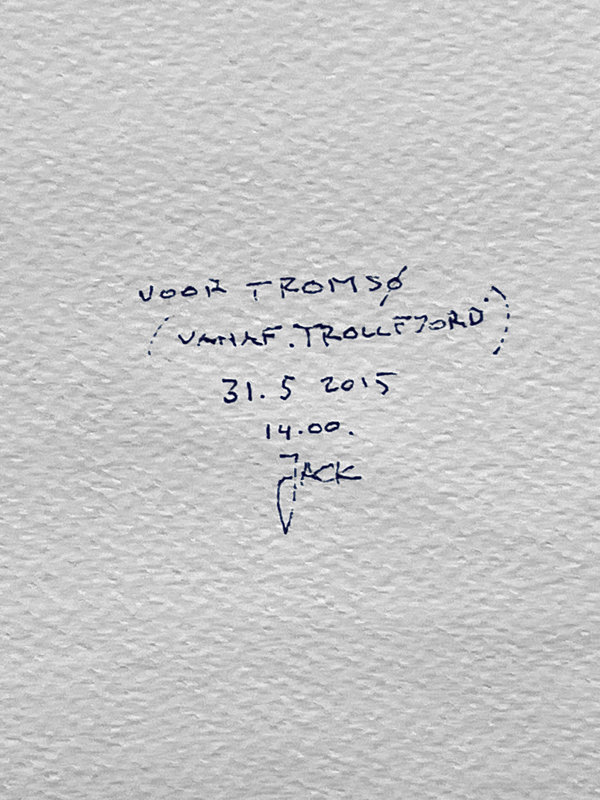 VOOR TROMSØ
(VANAF. TROLLFJORD.)
31.5 2015
14.00.
JACK